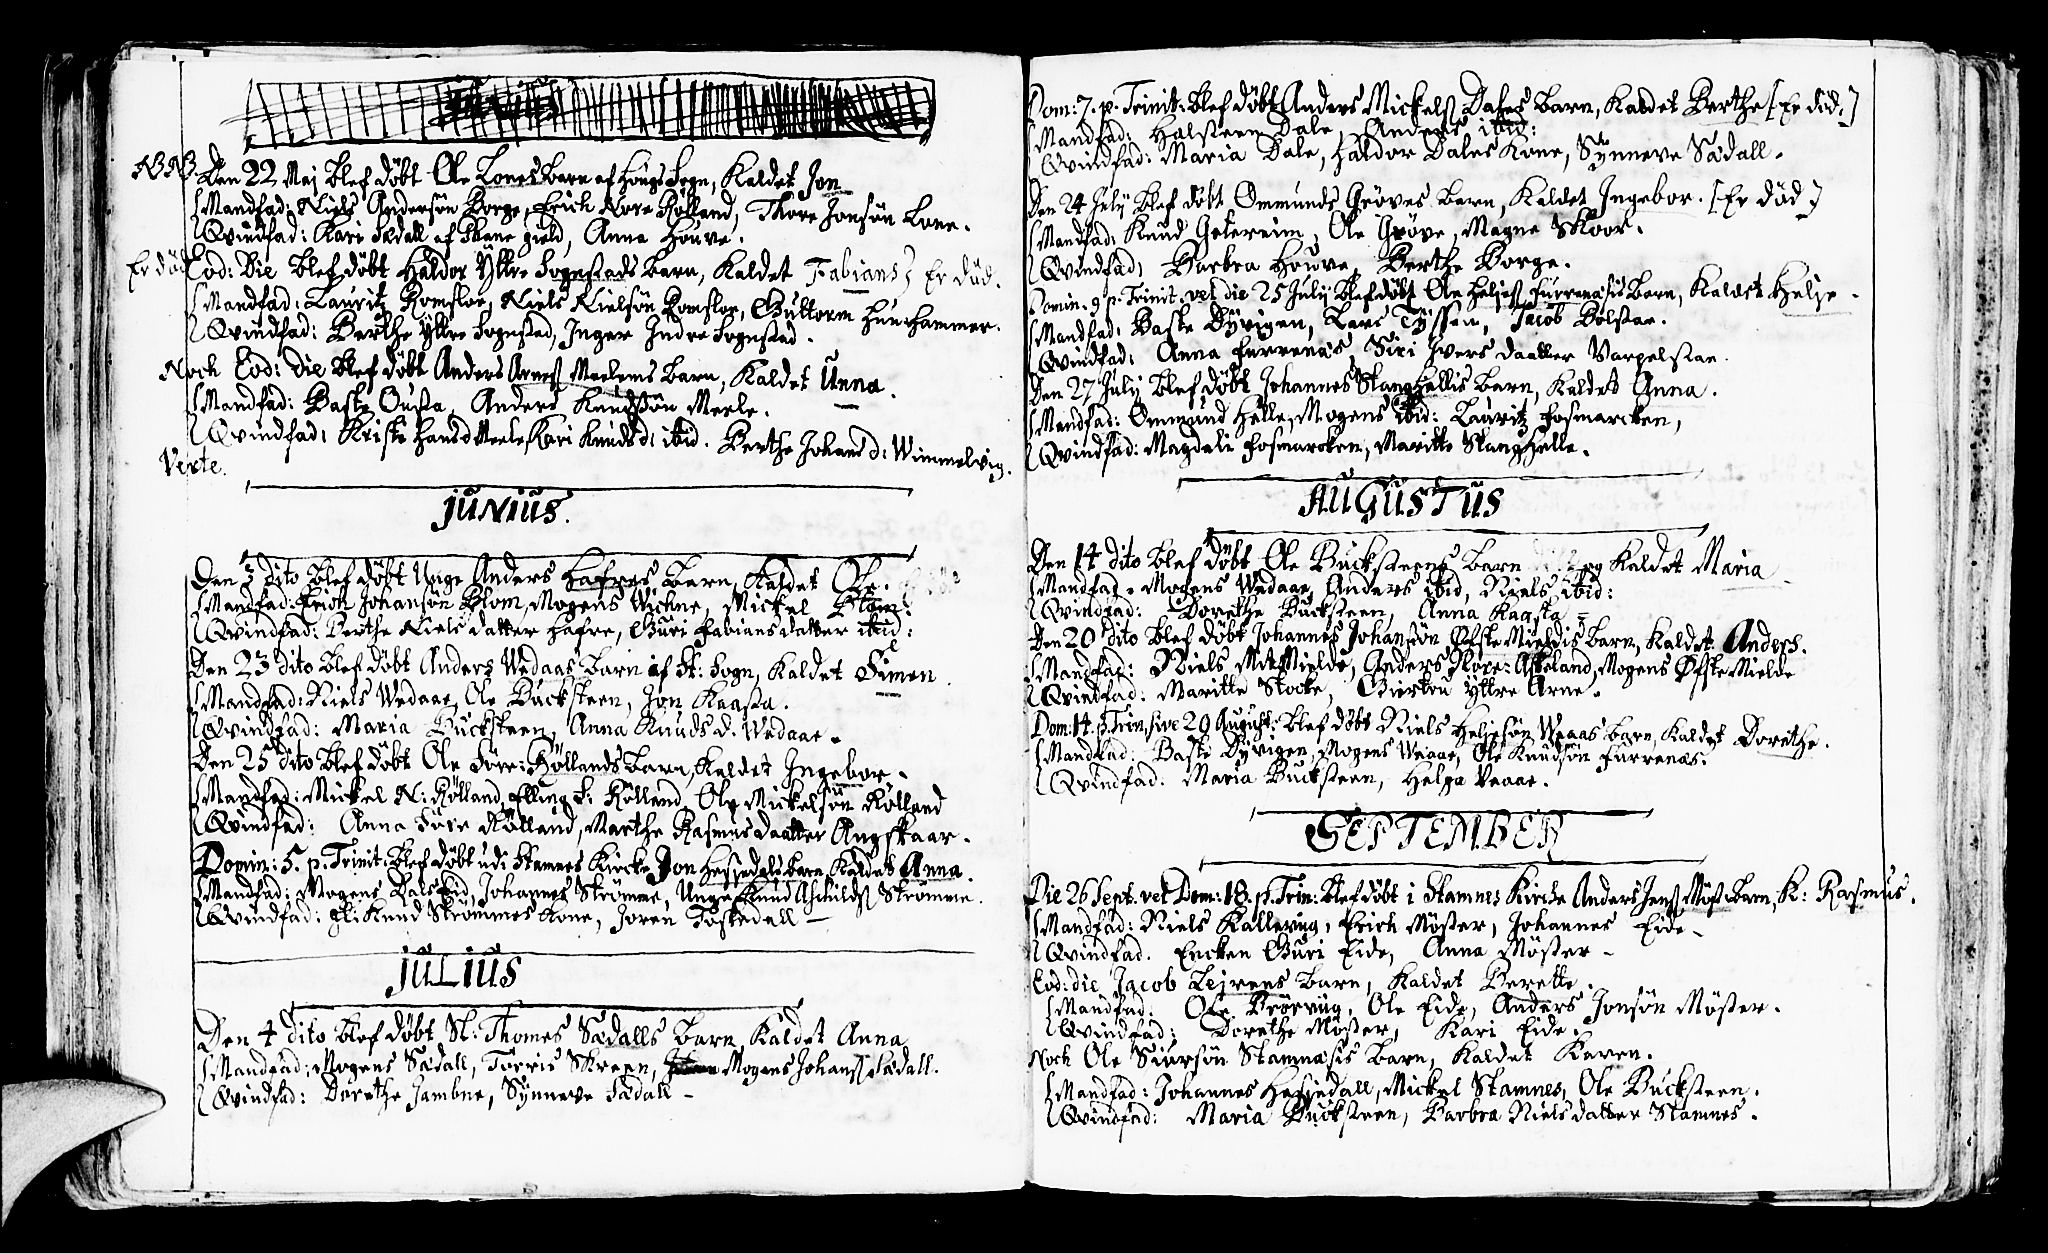 NB. NB. Den 22 Maj blef döbt Ole Lones barn af Hougs Sogn, kaldet Jon
Mandfad: Niels Andersön Borge, Erich Nore Rölland, Thore Jonsön Lone.
Qvindfad: Kari Sædall af Skane gield, Anna Houve.
Er död Eod: Die blef döbt Haldor Yttre Sognstads barn, kaldet Fabians, Er död.
Mandfad: Lauritz Romsloe, Niels Nielsön Romsloe, Guttorm Hun hammer.
Qvindfad: Berthe Yttre Sognstad, Inger Indre Sognstad.
Noch Eod: Die blef döbt Anders Arness Meelems barn, kaldet Unna.
Mandfad: Baste Ousta, Anders Knudssön Meele.
Qvindfad: Kriste Hansd Meele, Kari Knudsd: ibid. Berthe Johansd: Wimmelvig.
Verte.
JUNIUS.
Den 3 dito blef döbt Unge Anders Hafres barn, kaldet Ole.
Mandfad: Erich Johansön Blom, Mogens Wichne, Mickel Blom.
Qvindfad: Berthe Nielsdatter Hafre, Guri Fabiansdatter ibid:
Den 23 dito blef döbt Anders Wedaas barn af St: Sogn, kaldet Simen.
Mandfad: Niels Wedaae, Ole Bucksteen, Jon Kaasta.
Qvindfad: Maria Bucksteen, Anna Knuds d. Wedaae.
Den 25 dito blef döbt Ole Söre: Höllands barn, kaldet Ingebor.
Mandfad: Mickel N: Rölland, Elling S: Rölland, Ole Mickelsön Rölland
Qvindfad: Anna Söre Rölland, Marthe Rasmusdaatter Angskaar.
Domin: 5. p. Trinit: blef döbt udi Stamnes Kircke Jon Hessjedals barn, kaldet Anna.
Mandfad: Mogens Dals Eid, Johannes Strömme, Unge Knud Strömme.
Qvindfad: gl: Knud Strömmes Kone, Joren Toskedall
JULIUS
Den 4 dito blef döbt Sl: Thomes Sædalls barn, kaldet Anna
Mandfad: Mogens Sædall, Torris Skreen, Mogens Johanss Sædall.
Qvindfad: Dorethe Jambne, Synneve Sædall
Dom: 7. p. Trinit: blef döbt Anders Mickelss Dales barn, kaldet Berthe [Er död:]
Mandfad: Halsteen Dale, Anders ibid:
Qvindfad: Maria Dale, Haldor Dales Kone, Synneve Sædall.
Den 24 July blef döbt Ommunds Gröves barn, kaldet Ingebor. [Er död]
Mandfad: Knud Getereim, Ole Gröve, Magne Skoor.
Qvindfad: Barbra Houve, Berthe Borge.
Domin. 9 p. Trinit. vel die 25 July blef döbt Ole Heljess Furrenæsis barn, kaldet Helje.
Mandfad: Baste Dyvigen, Lars Tyssen, Jacob Bolstae.
Qvindfad: Anna Furrenæs, Siri Iversdaatter Varpelstae.
Den 27 July blef döbt Johannes Stanghellis barn, kaldet Anna.
Mandfad: Ommund Helle, Mogens ibid: Lauritz Fosmarcken,
Qvindfad: Magdeli Fosmarcken, Maritte Stanghelle.
AUGUSTUS
Den 14 dito blef döbt Ole Bucksteens barn kaldet Maria
Mandfad: Mogens Wedaae, Anders ibid, Niels ibid:
Qvindfad: Dorethe Bucksteen, Anna Kaasta
Den 20 dito blef döbt Johannes Johanssön Öfste Mieldis barn, kaldet Anders.
Mandfad: Niels MitMielde, Anders Nore: Askeland, Mogens Öfste Mielde
Qvindfad: Maritte Stocke, Giertru Yttre Arne.
Dom: 14. p. Trin, sive 29 August: blef döbt Niels Heljesön Weaas barn, kaldet Dorethe.
Mandfad: Baste Dyvigen, Mogens Weaae, Ole Knudsön Furrenæs.
Qvindfad: Maria Bucksteen, Helga Veaae.
SEPTEMBER
Die 26 Sept. vel Dom: 18. p. Trin: blef döbt i Stamnes Kirche Anders Jenss Möss barn, K: Rasmus.
Mandfad: Niels Kallevug, Erich Möster, Johannes Eide
Qvindfad. Encken Guri Eide, Anna Möster
Eod: die Jacob Lejrens barn, kaldet Berette.
Mandfad: Ole Brörvug, Ole Eide, Anders Jonsön Möster.
Qvindfad: Dorethe Möster, Kari Eide.
Noch Ole Siursön Stamnæsis barn, kaldet Karen.
Mandfad: Johannes Hessjedall, Mickel Stamnes, Ole Bucksteen.
Qvindfad: Maria Bucksteen, Barbra Nielsdatter Stamnes.